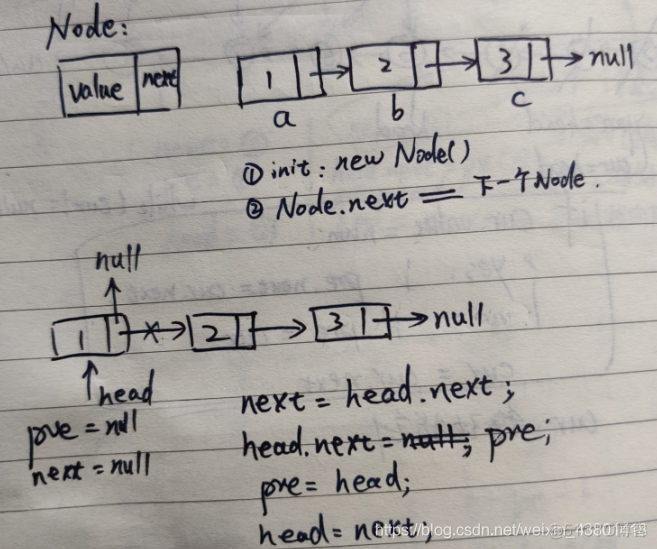 Node:
value next
1 2 3 null
a b c
① init: new Node()
② Node.next = 下一个Node.
null
1 2 3 null
head
pre = null
next = null
next = head.next;
head.next = null; pre;
pre = head;
head = next;